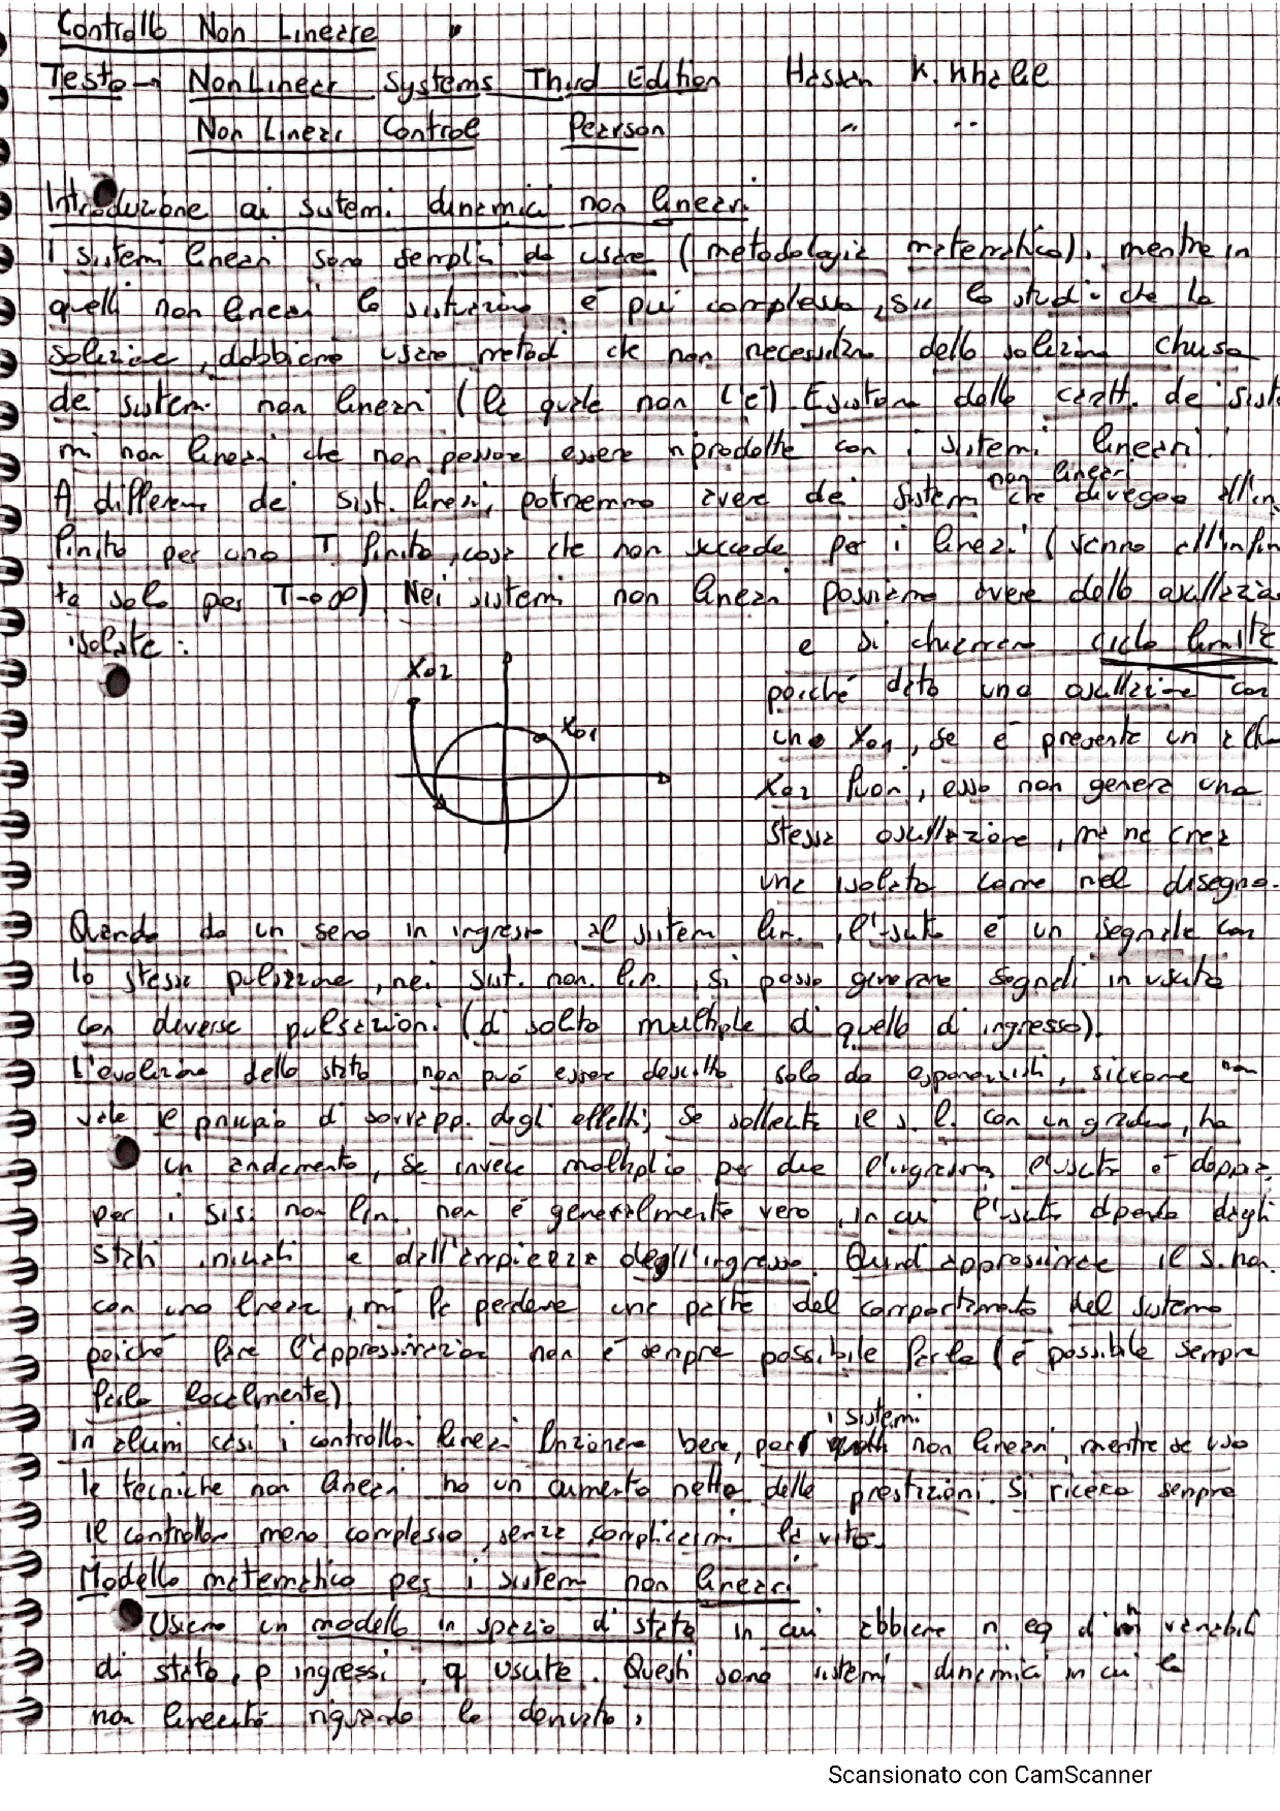 Controllo Non Lineare
Testo → Non Linear Systems Third Edition Hassan K. Khalil
Non Linear Control Pearson " "
Introduzione ai sistemi dinamici non lineari
I sistemi lineari sono semplici da usare (metodologia matematica), mentre in
quelli non lineari la situazione è più complessa, sia lo studio che la
soluzione, dobbiamo usare metodi che non necessitano della soluzione chiusa
dei sistemi non lineari (la quale non c'è). Esistono delle caratt. dei siste
mi non lineari che non possono essere riprodotte con i sistemi lineari.
A differenza dei sist. lineari, potremmo avere dei sistemi non lineari che divergono all'in
finito per uno T finito, cosa che non succede per i lineari (vanno all'infini
to solo per T→∞) Nei sistemi non lineari possiamo avere delle oscillazioni
isolate:
e si chiamano ciclo limite
X02
X01
poiché data una oscillazione con
uno X01, se è presente un altro
X02 fuori, esso non genera una
stessa oscillazione, ma ne crea
una isolata come nel disegno.
Quando do un seno in ingresso al sistem lin., l'uscita è un segnale con
la stessa pulsazione, nei sist. non. lin. si posso generare segnali in uscita
con diverse pulsazioni (di solito multiple di quella di ingresso).
L'evoluzione dello stato non può essere descritta solo da esponenziali, siccome non
vale il principio di sovrapp. degli effetti; se sollecito il s. l. con un gradino, ho
un andamento, se invece moltiplico per due l'ingresso l'uscita è doppia,
per i sis. non lin. non è generalmente vero, in cui l'uscita dipende dagli
stati iniziali e dall'ampiezza degli'ingresso. Quindi approssimare il s. non.
con uno lineare, mi fa perdere una parte del comportamento del sistema
poiché fare l'approssimazion non è sempre possibile farla (è possibile sempre
farla localmente).
In alcuni casi i controllori lineari funzionano bene, per i sistemi non lineari, mentre se uso
le tecniche non lineari ho un aumento netto delle prestazioni. Si ricerca sempre
il controllore meno complesso, senza complicarmi la vita.
Modello matematico per i sistemi non lineari
Usiamo un modello in spazio di stato in cui abbiamo n eq di n variabili
di stato, p ingressi, q uscite. Questi sono sistemi dinamici in cui la
non linearità riguarda la derivata,
Scansionato con CamScanner